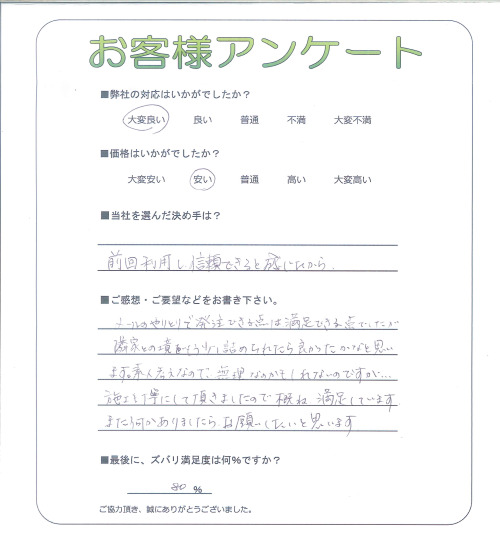 お客様アンケート
■弊社の対応はいかがでしたか？
大変良い 良い 普通 不満 大変不満
■価格はいかがでしたか？
大変安い 安い 普通 高い 大変高い
■当社を選んだ決め手は？
前回利用し信頼できると感じたから。
■ご感想・ご要望などをお書き下さい。
メールのやりとりで発注できる点は満足できる点でしたが
隣家との境をもう少し詰められたら良かったかなと思い
ます。素人考えなので、無理なのかもしれないのですが…
施工も丁寧にして頂きましたので概ね満足しています
また何かありましたらお願いしたいと思います
■最後に、ズバリ満足度は何%ですか？
80 %
ご協力頂き、誠にありがとうございました。